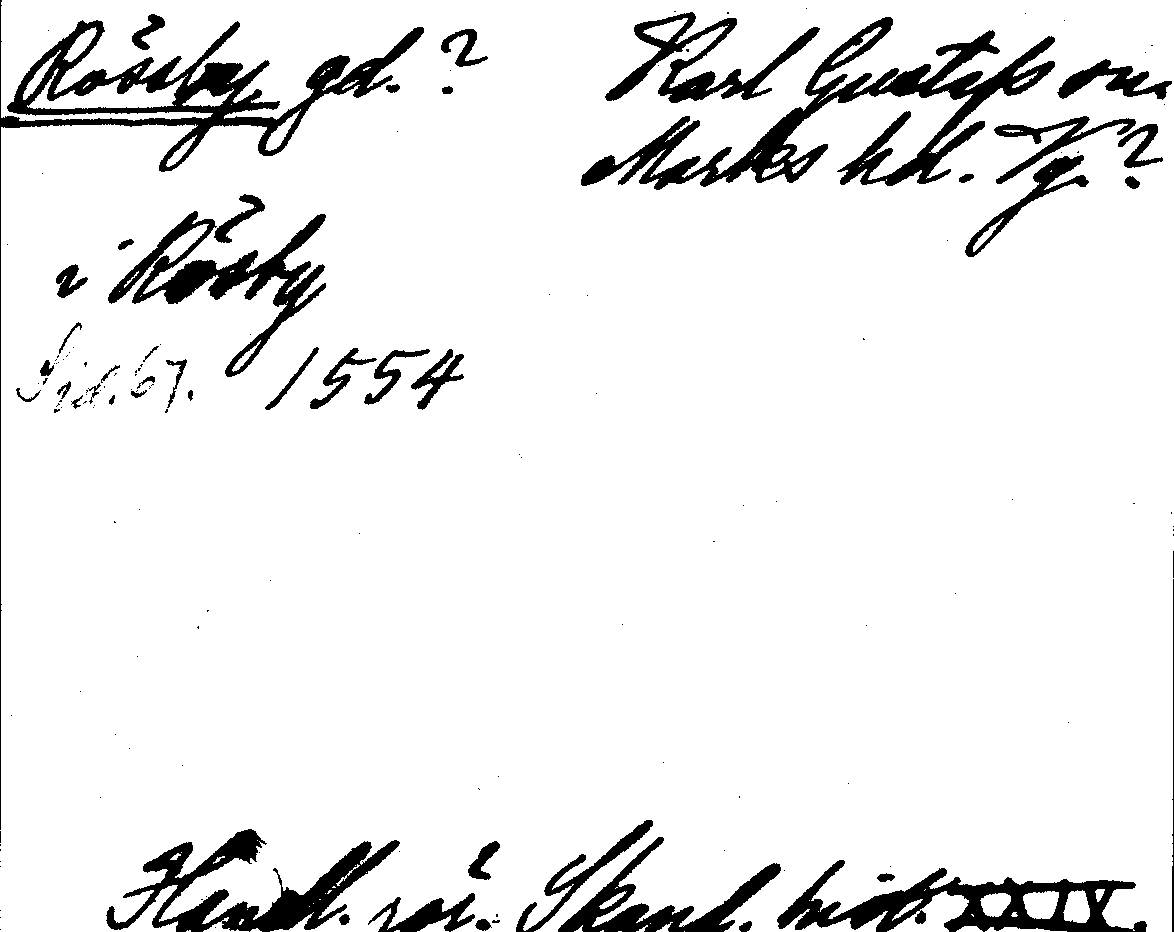 Rösby gd. ? Karl Gustafs sn.
Marks hd. Vg. ?
i Rösby
Sid. 67. 1554
Handl. rör. Skand. hist. XXIX.